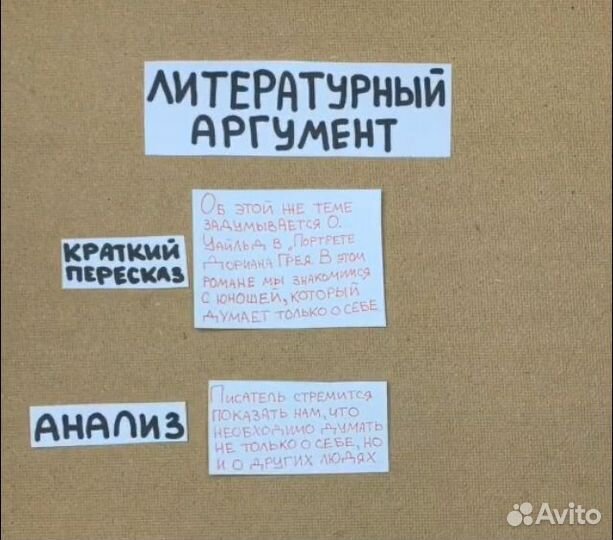 ЛИТЕРАТУРНЫЙ
АРГУМЕНТ
КРАТКИЙ
ПЕРЕСКАЗ
ОБ ЭТОЙ ЖЕ ТЕМЕ
ЗАДУМЫВАЕТСЯ О.
УАЙЛЬД В „ПОРТРЕТЕ
ДОРИАНА ГРЕЯ. В ЭТОМ
РОМАНЕ МЫ ЗНАКОМИМСЯ
С ЮНОШЕЙ, КОТОРЫЙ
ДУМАЕТ ТОЛЬКО О СЕБЕ
АНАЛИЗ
ПИСАТЕЛЬ СТРЕМИТСЯ
ПОКАЗАТЬ НАМ, ЧТО
НЕОБХОДИМО ДУМАТЬ
НЕ ТОЛЬКО О СЕБЕ, НО
И О ДРУГИХ ЛЮДЯХ
Avito